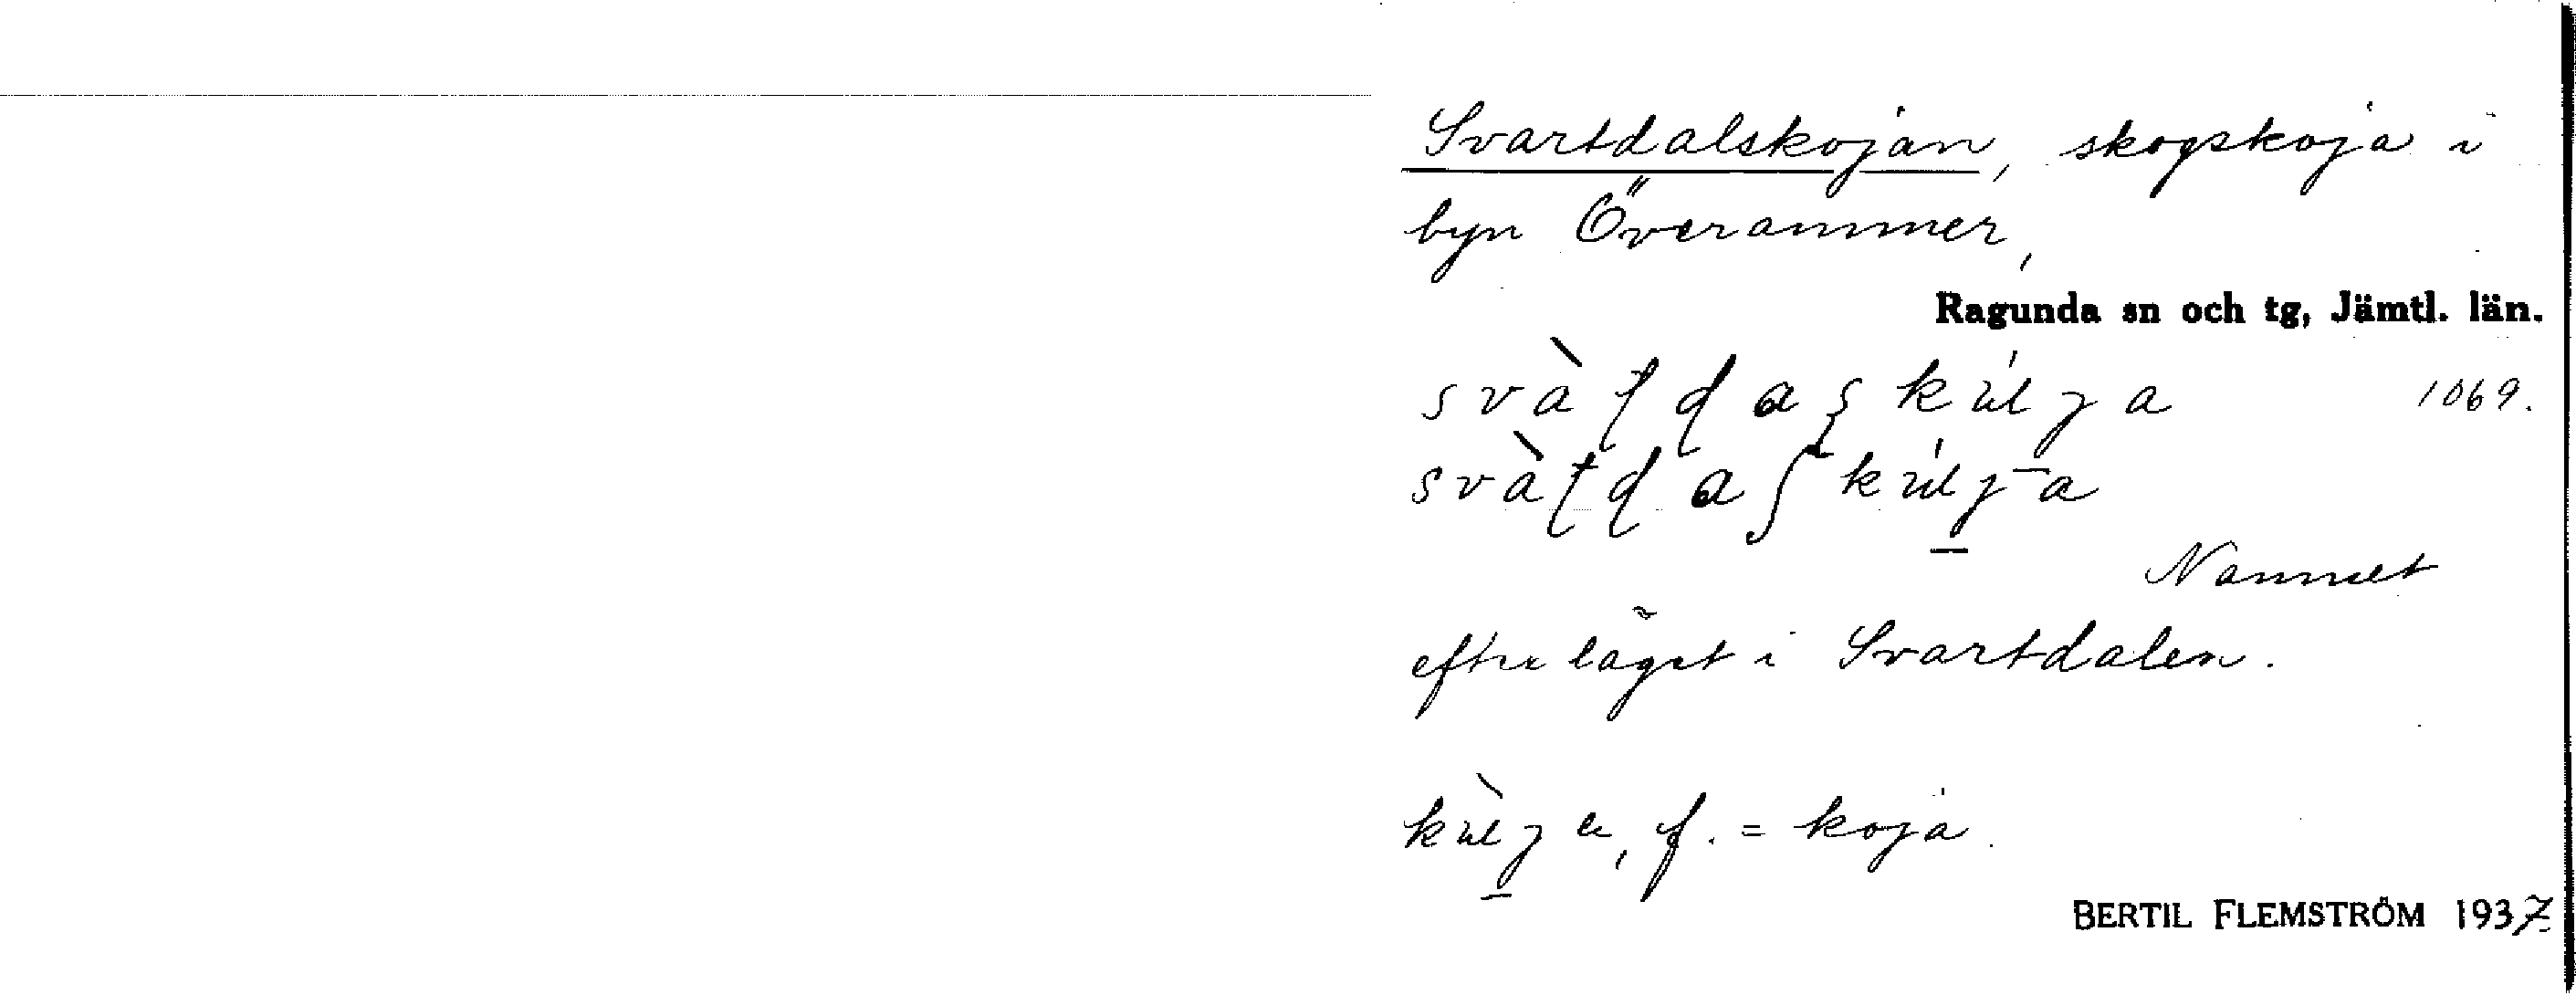 Svartdalskojan, skogskoja i
byn Överammer,
Ragunda sn och tg, Jämtl. län.
1069.
Namnet
efter läget i Svartdalen.
f. = koja.
BERTIL FLEMSTRÖM 1937